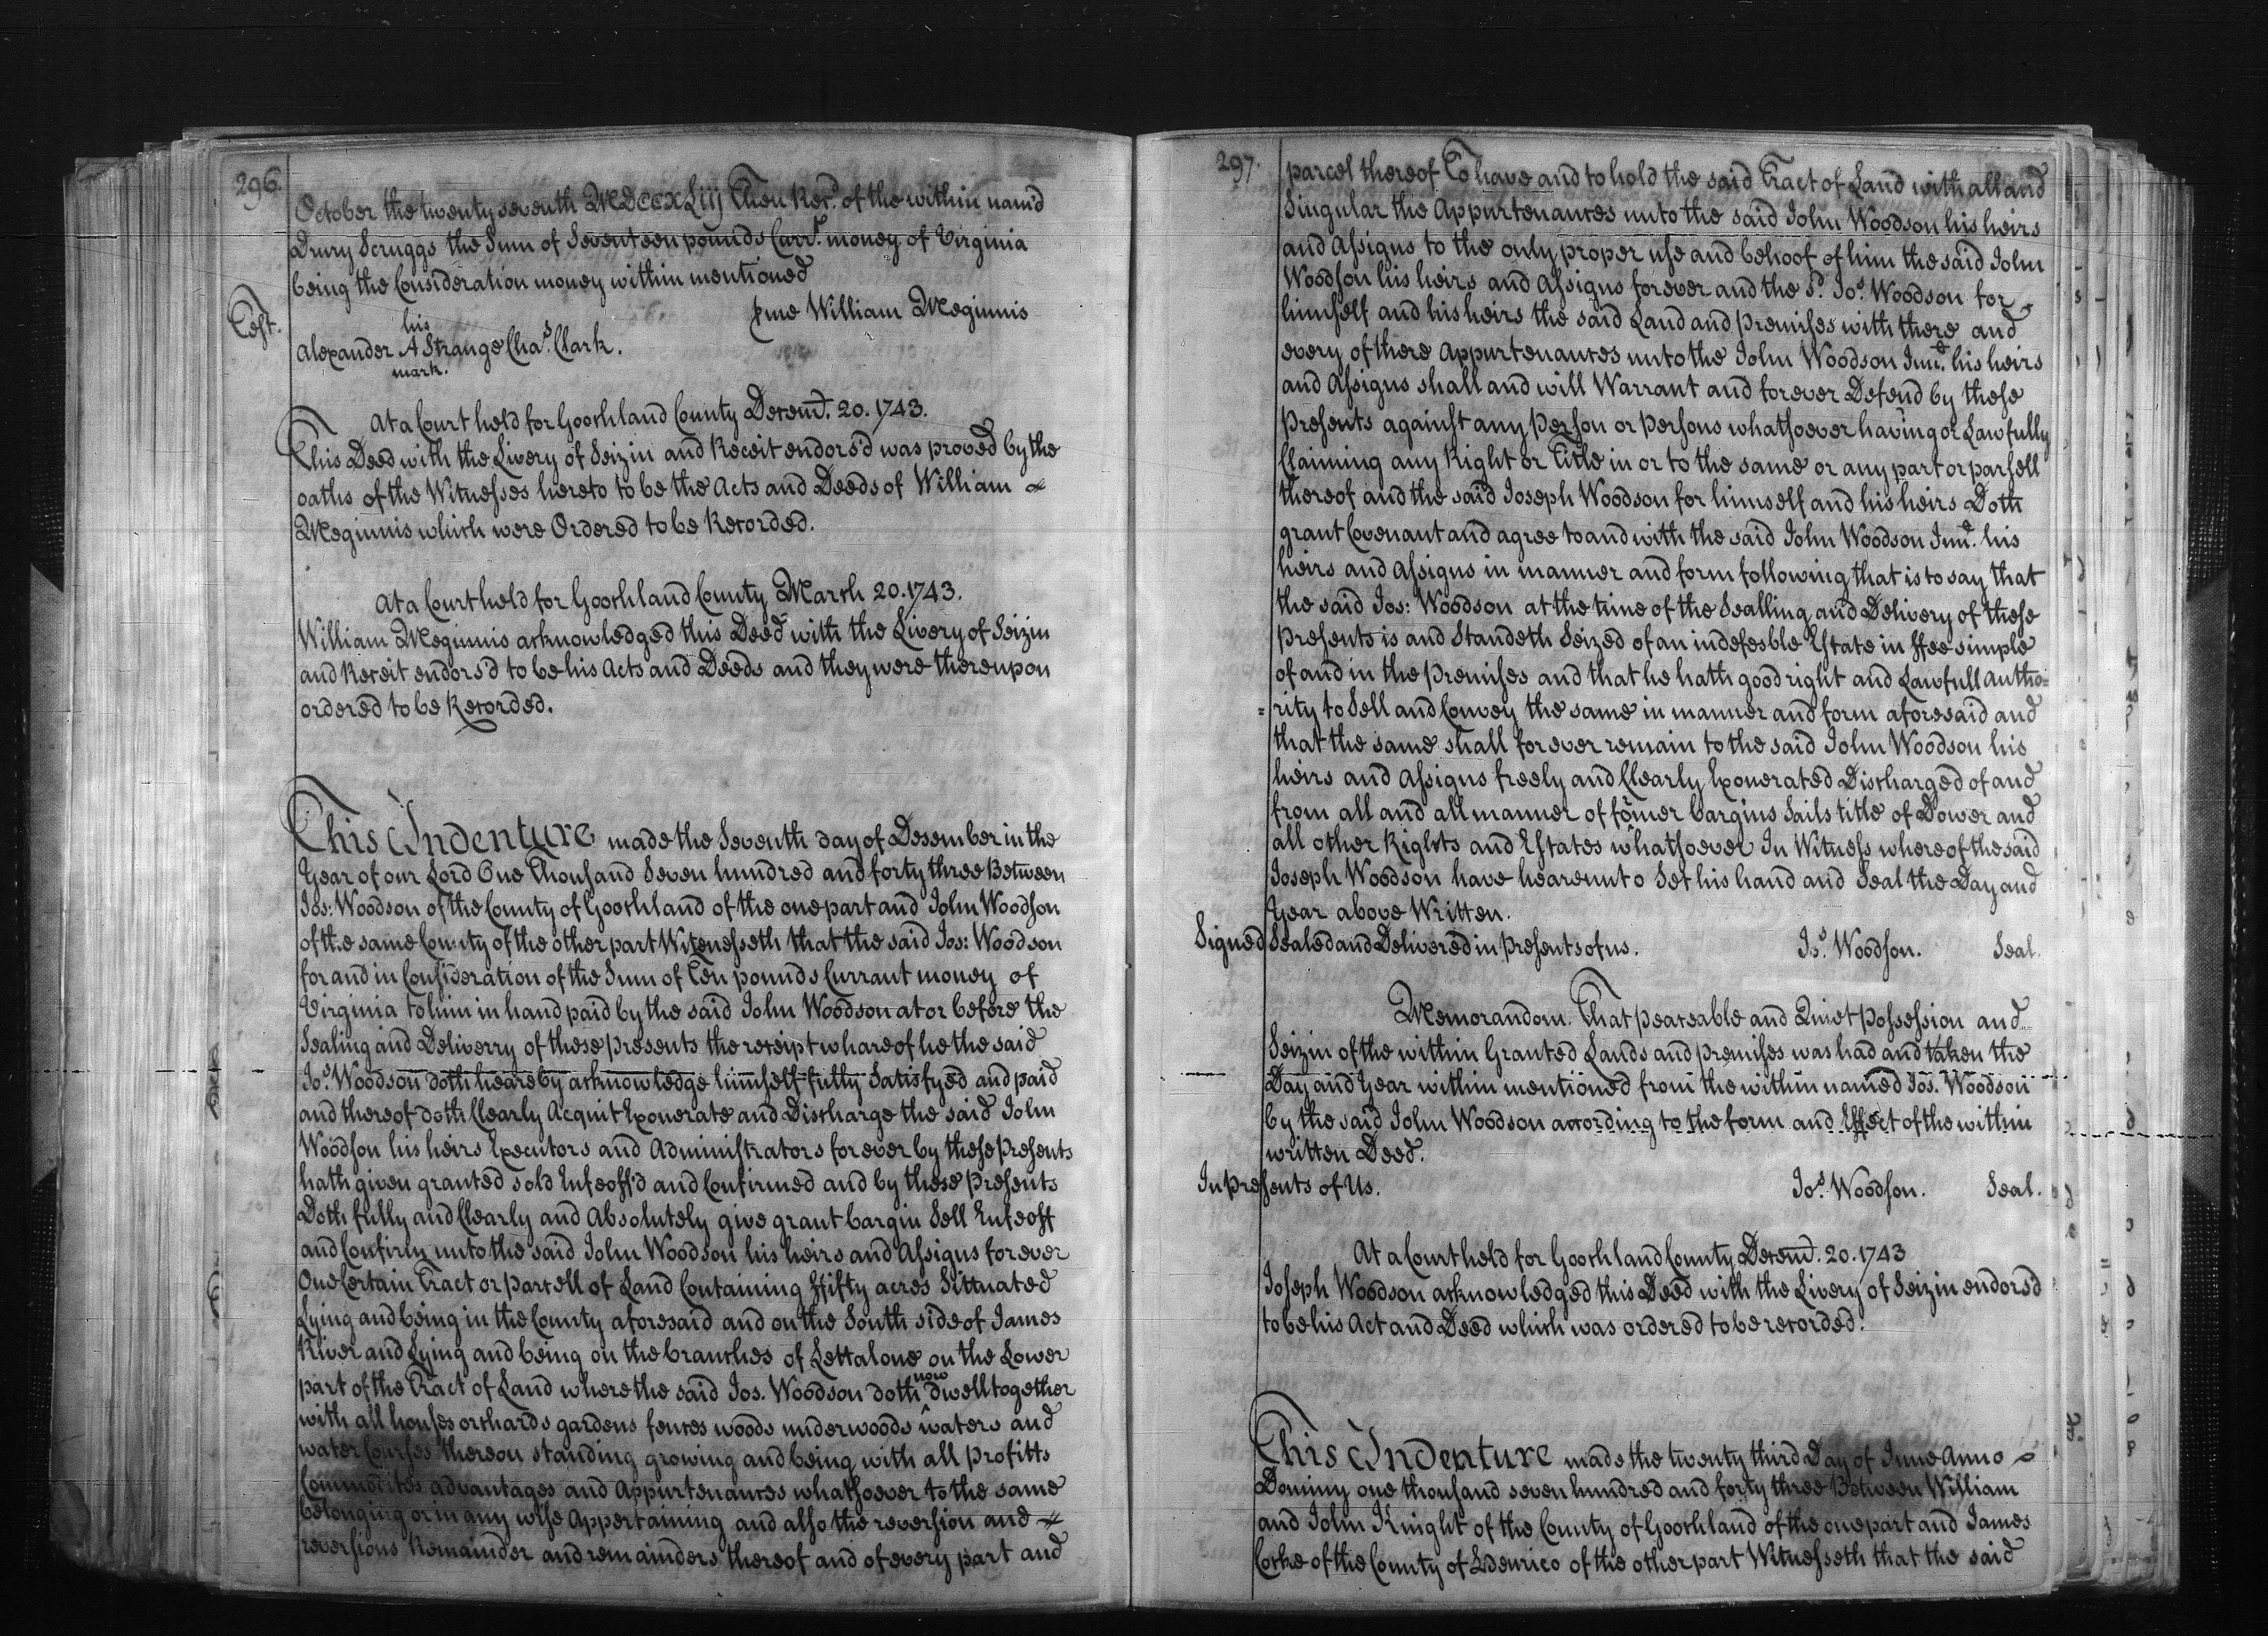 296.
October the twenty seventh MDCCXLiij Then Recd. of the within nam'd
Drury Scruggs the Sum of Seventeen pounds Carrt. money of Virginia
being the Consideration money within mentioned
pme William Meginnis
Test.
his
Alexander A Strange Chas. Clark.
mark.
At a Court held for Goochland County Decemr. 20. 1743.
This Deed with the Livery of Seizin and Receit endors'd was proved by the
oaths of the Witnesses hereto to be the Acts and Deeds of William
Meginnis which were Ordered to be Recorded.
At a Court held for Goochland County March 20. 1743.
William Meginnis acknowledged this Deed with the Livery of Seizin
and Receit endors'd to be his Acts and Deeds and they were thereupon
ordered to be Recorded.
This Indenture made the Seventh day of Desember in the
Year of our Lord One Thousand Seven hundred and forty three Between
Jos: Woodson of the County of Goochland of the one part and John Woodson
of the same County of the other part Witenesseth that the said Jos: Woodson
for and in Consideration of the Sum of Ten pounds Currant money of
Virginia to him in hand paid by the said John Woodson at or before the
Sealing and Deliverry of these presents the receipt whareof he the said
Jos. Woodson doth heareby acknowledge himself fully Satisfyed and paid
and thereof doth Clearly Acquit Exonerate and Discharge the said John
Woodson his heirs Executors and Administrators forever by these Presents
hath given granted sold Enfeoff'd and Confirmed and by these presents
Doth fully and Clearly and Absolutely give grant bargin Sell Enfeoff
and Confirm unto the said John Woodson his heirs and Assigns forever
One Certain Tract or parcell of Land Containing ffifty acres Sittuated
Lying and being in the County aforesaid and on the South side of James
River and Lying and being on the branches of Lettalone on the Lower
part of the Tract of Land where the said Jos. Woodson doth now dwell together
with all houses orchards gardens fences woods underwoods waters and
water Courses thereon standing growing and being with all profitts
Commodites advantages and Appurtenances whatsoever to the same
belonging or in any wise Appertaining and also the reversion and
reversions Remainder and remainders thereof and of every part and
297.
parcel thereof To have and to hold the said Tract of Land with all and
Singular the Appurtenances unto the said John Woodson his heirs
and Assigns to the only proper use and behoof of him the said John
Woodson his heirs and Assigns forever and the sd. Jos. Woodson for
himself and his heirs the said Land and premises with there and
every of there Appurtenances unto the John Woodson Junr. his heirs
and Assigns shall and will Warrant and forever Defend by these
Presents against any Person or Persons whatsoever having or Lawfully
Claiming any Right or Title in or to the same or any part or parsell
thereof and the said Joseph Woodson for himself and his heirs Doth
grant Covenant and agree to and with the said John Woodson Junr. his
heirs and Assigns in manner and form following that is to say that
the said Jos: Woodson at the time of the Sealling and Delivery of these
presents is and Standeth Seized of an indefesble Estate in ffee simple
of and in the Premises and that he hath good right and Lawfull autho=
=rity to Sell and Convey the same in manner and form aforesaid and
that the same shall for ever remain to the said John Woodson his
heirs and Assigns freely and Clearly Exonerated Discharged of and
from all and all manner of former bargins Sails title of Dower and
all other Rights and Estates whatsoever In Witness whereof the said
Joseph Woodson have hearennto Set his hand and Seal the Day and
Year above Written.
Signed Sealed and Delivered in Presents of us. Jos. Woodson. Seal.
Memorandom. That peaceable and Quiet Possession and
Seizin of the within Granted Lands and premises was had and taken the
Day and Year within mentioned from the within named Jos. Woodson
by the said John Woodson according to the form and Effect of the within
written Deed.
In Presents of Us. Jos. Woodson. Seal.
At a Court held for Goochland County Decemr. 20. 1743
Joseph Woodson acknowledged this Deed with the Livery of Seizin endors'd
to be his Act and Deed which was ordered to be recorded.
This Indenture made the twenty third Day of June Anno
Dominy one thousand seven hundred and forty three Between William
and John Knight of the County of Goochland of the one part and James
Cocke of the County of Henrico of the other part Witnesseth that the said